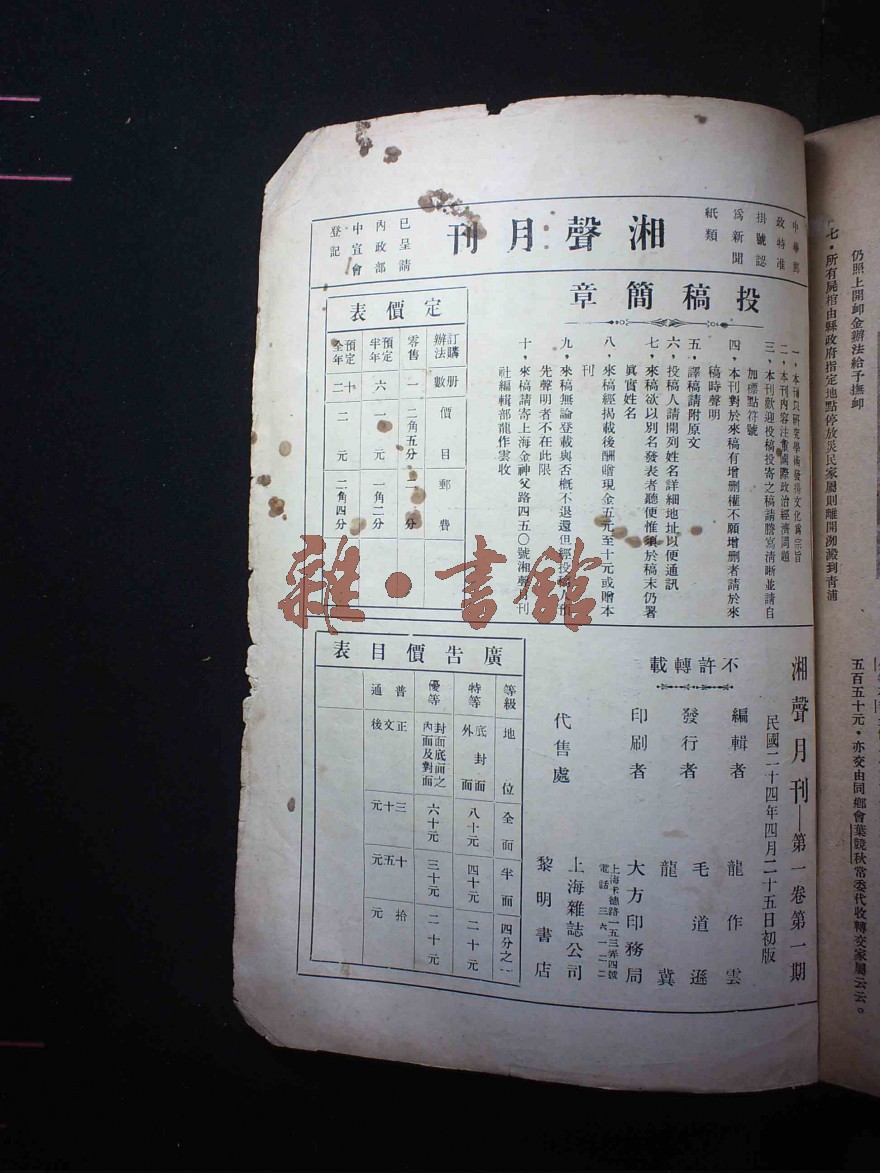 中華郵
政特准
掛號認
爲新聞
紙類
湘聲月刊
已呈請
內政部
中宣會
登記
投稿簡章
一，本刊以研究學術發揚文化爲宗旨
二，本刊內容注重國際政治經濟問題
三，本刊歡迎投稿投寄之稿請謄寫清晰並請自
加標點符號
四，本刊對於來稿有增删權不願增删者請於來
稿時聲明
五，譯稿請附原文
六，投稿人請開列姓名詳細地址以便通訊
七，來稿欲以別名發表者聽便惟須於稿末仍署
眞實姓名
八，來稿經揭載後酬贈現金五元至十元或贈本
刊
九，來稿無論登載與否槪不退還但經投稿人預
先聲明者不在此限
十，來稿請寄上海金神父路四五〇號湘聲月刊
社編輯部龍作雲收
定價表
訂購辦法 册數 價目 郵費
零售 一 二角五分 二分
預定半年 六 一元 一角二分
預定全年 十二 二元 二角四分
湘聲月刊—第一卷第一期
民國二十四年四月二十五日初版
不許轉載
編輯者 龍作雲
發行者 毛道遜
龍冀
印刷者 大方印務局
上海承德路一五三弄四號
電話三六一二二
代售處 上海雜誌公司
黎明書店
廣告價目表
等級 地位 全面 半面 四分之一
特等 底封面外面 八十元 四十元 二十元
優等 封面底面之內面及對面 六十元 三十元 二十元
普通 正文後 三十元 十五元 拾元
七，所有屍棺由縣政府指定地點停放災民家屬則離開泖澱到青浦
仍照上開卹金辦法給予撫卹
五百五十元，亦交由同鄉會葉競秋常委代收轉交家屬云云。
雜·書館